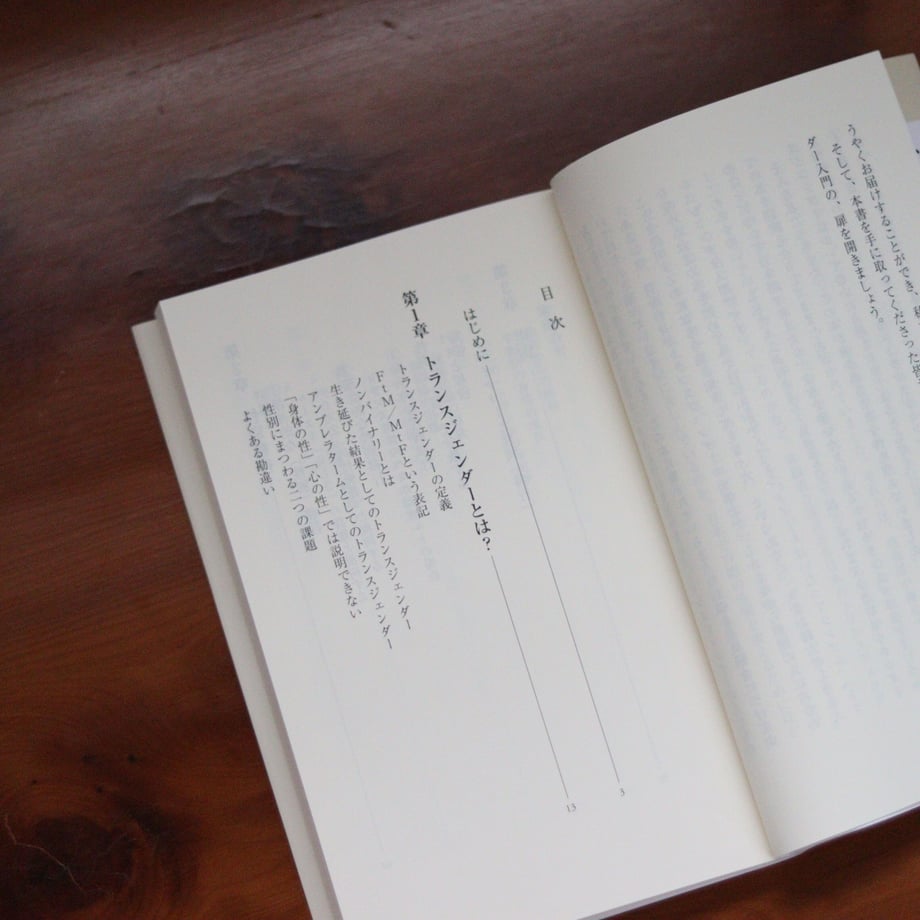 うやくお届けすることができ、
そして、本書を手に取ってくださった皆
ダー入門の、扉を開きましょう。
目次
はじめに 3
第1章 トランスジェンダーとは? 13
トランスジェンダーの定義
FtM/MtFという表記
ノンバイナリーとは
生き延びた結果としてのトランスジェンダー
アンブレラタームとしてのトランスジェンダー
「身体の性」「心の性」では説明できない
性別にまつわる二つの課題
よくある勘違い